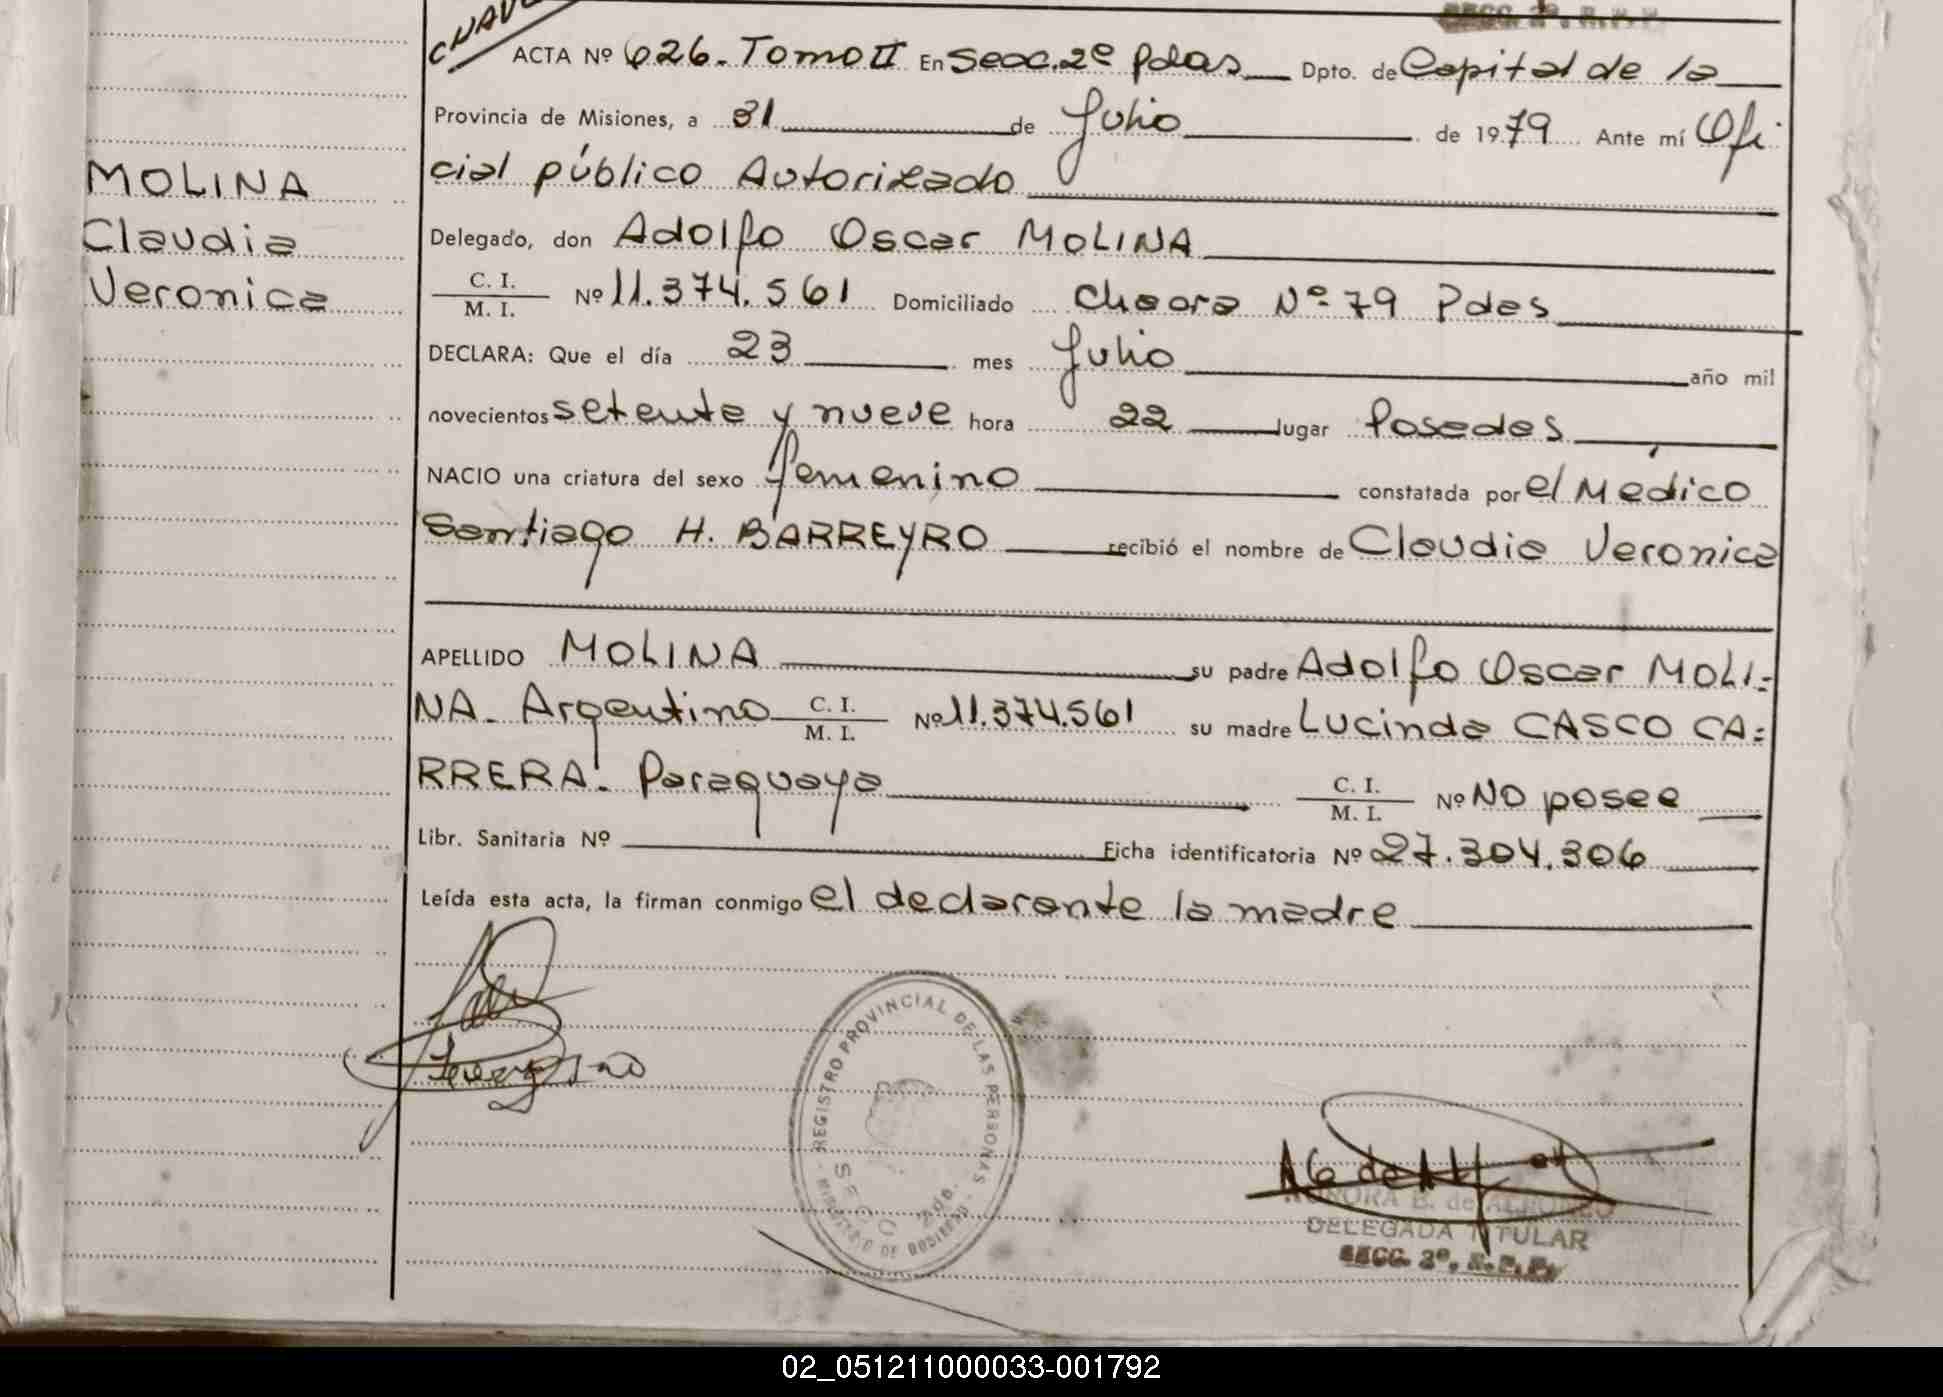 SECC. 2ª, R.P.P.
ACTA Nº 626. Tomo II En Secc. 2ª Pdas Dpto. de Capital de la
Provincia de Misiones, a 31 de Julio de 1979 Ante mí Ofi
cial público Autorizado
Delegado, don Adolfo Oscar MOLINA
C. I.
M. I. Nº 11.374.561 Domiciliado Chacra Nº 79 Pdas
DECLARA: Que el día 23 mes Julio año mil
novecientos setenta y nueve hora 22 lugar Posadas
NACIO una criatura del sexo femenino constatada por el Médico
Santiago H. BARREYRO recibió el nombre de Claudia Veronica
APELLIDO MOLINA su padre Adolfo Oscar MOLI-
NA. Argentino C. I.
M. I. Nº 11.374.561 su madre Lucinda CASCO CA-
RRERA. Paraguaya C. I.
M. I. Nº No posee
Libr. Sanitaria Nº Ficha identificatoria Nº 27.304.306
Leída esta acta, la firman conmigo el declarante la madre
MOLINA
Claudia
Veronica
REGISTRO PROVINCIAL DE LAS PERSONAS
MINISTERIO DE GOBIERNO
SECC 2da.
AURORA B. de
DELEGADA TITULAR
SECC. 2ª, R.P.P.
02_051211000033-001792